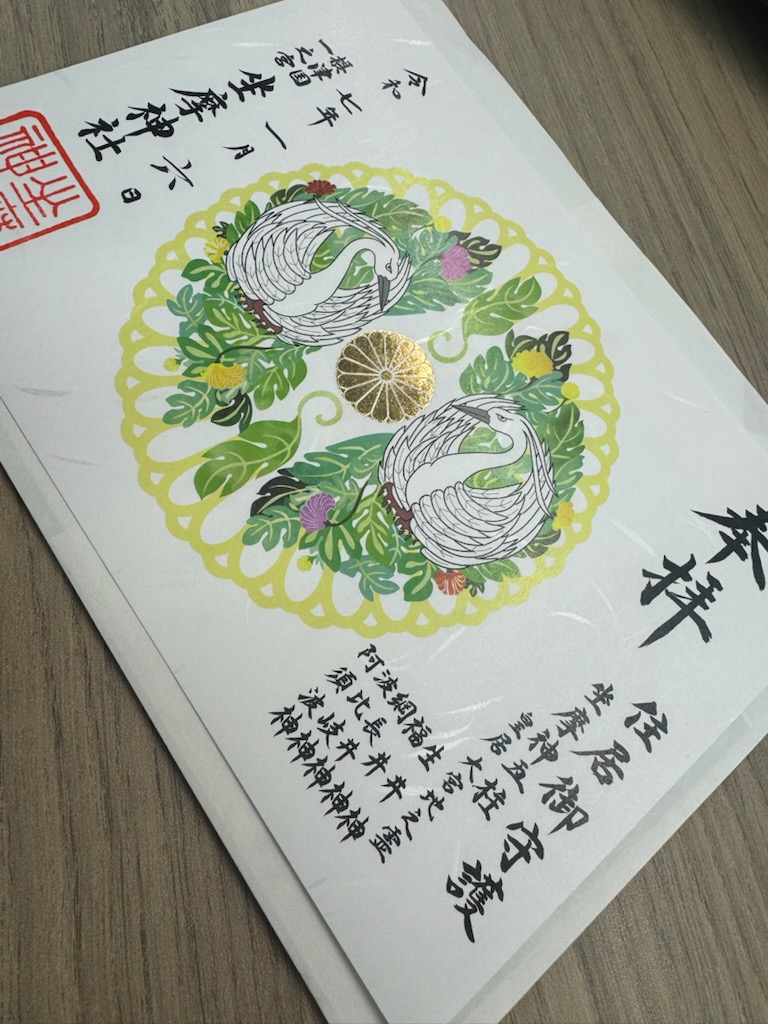 奉拝
住居御守護
坐摩神五柱
皇居大宮地之霊
生井神
福井神
綱長井神
波比岐神
阿須波神
令和七年一月六日
摂津国
一之宮
坐摩神社
坐摩
神